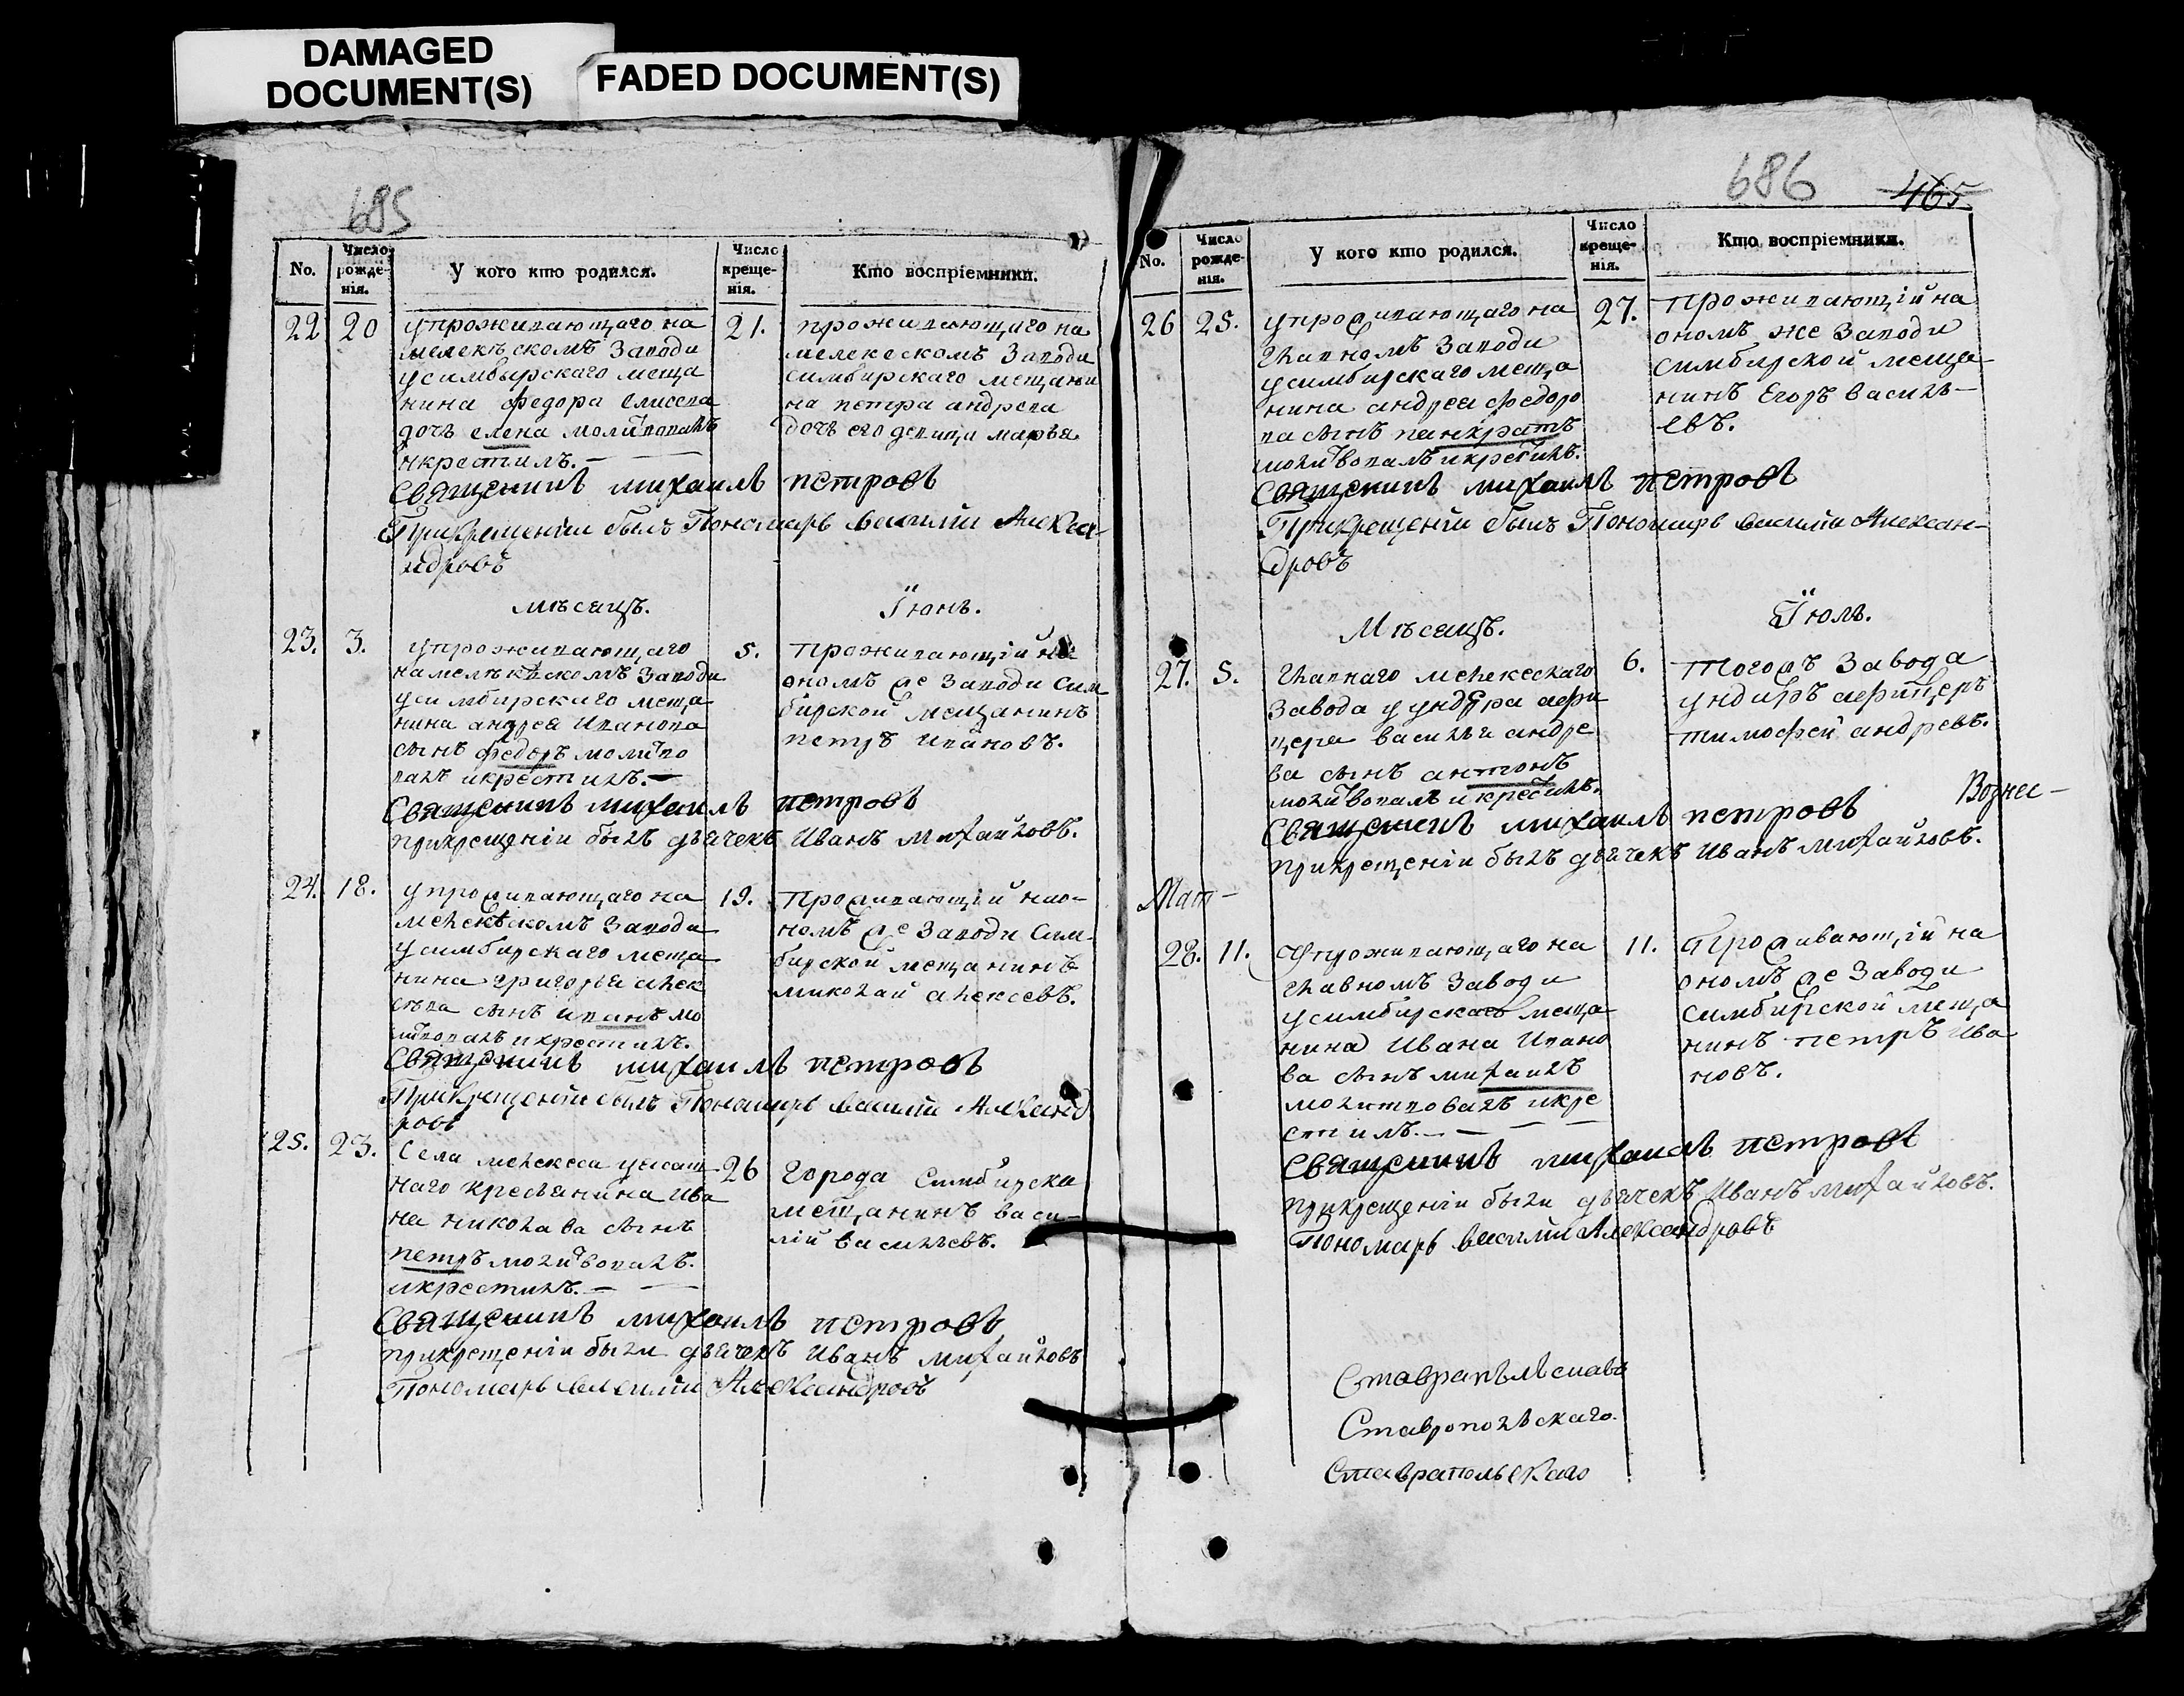 DAMAGED
DOCUMENT(S)
FADED DOCUMENT(S)
685
No. Число рожде-нія. У кого кто родился. Число креще-нія. Кто воспріемники.
22 20 21.
упроживающаго на
мелекѣскомъ Заводи
усимбырскаго меща
нина федора елисева
дочь елена молитвовалъ
икрестилъ.—
проживающаго на
мелекескомъ Заводи
симбирскаго мещани
на петра андрева
дочь его девица марья
Священикъ михаилъ петровъ
Прикрещеніи былъ Пономарь василий Алекса-
ндровъ
мѣсецъ. Іюнь.
23. 3. 5.
упроживающаго
намелѣкѣскомъ Заводи
усимбирскаго меща
нина андрея Иванова
сынъ федоръ молитво
валъ икрестилъ.—
проживающій на
ономъ же Заводи сим
бирской мещанинъ
петръ Ивановъ.
Священикъ михаилъ петровъ
прикрещеніи былъ дьячекъ Иванъ Михайловъ.
24. 18. 19.
упроживающаго на
мелекѣскомъ Заводи
усимбирскаго меща
нина григорья алек
сѣва сынъ иванъ мо
литвовалъ икрестилъ.
Проживающій нао-
номъ же Заводи Сим-
бирской мещанинъ
николай алексевъ.
Священикъ михаилъ петровъ
Прикрещеніи былъ Пономарь василий Александ
ровъ
25. 23. 26
Села мелекеса
наго кресьянина Ива
на николава сынъ
петръ молитвовалъ.
икрестилъ.—
города Симбирска
мещанинъ васи-
лій васильевъ.
Священикъ михаилъ петровъ
прикрещеніи были дьячекъ Иванъ михайловъ
Пономарь василий Александровъ
686 465
No. Число рожде-нія. У кого кто родился. Число креще-нія. Кто воспріемники.
26 25. 27.
упроживающаго на
главномъ Заводи
усимбирскаго меща
нина андрея федоро
ва сынъ панкратъ
молитвовалъ икрестилъ.
проживающій на
ономъ же Заводи
симбирской меща-
нинъ Егоръ василь-
евъ.
Священикъ михаилъ петровъ
Прикрещеніи былъ Пономарь василий Алексан-
дровъ
Мѣсецъ. Іюль.
27. 5. 6.
главнаго мелекескаго
завода у ундера афи
цера василья андре
ва сынъ антонъ
молитвовалъ и крестилъ.
тогожъ Завода
ундиръ афицеръ
тимофей андревъ.
Вознес-
Священикъ михаилъ петровъ
прикрещеніи былъ дьячекъ Иванъ Михайловъ.
Мат-
28. 11. 11.
Упроживающаго на
главномъ Заводи
усимбирскаго меща
нина Ивана Ивано
ва сынъ михаилъ
молитвовалъ икре
стилъ.—
Проживающій на
ономъ же Заводи
симбирской меща
нинъ петръ Ива
новъ.
Священикъ михаилъ петровъ
прикрещеніи были дьячекъ Иванъ михайловъ.
Пономарь василий Александровъ
Ставропольскаго.
Ставрапольскаго